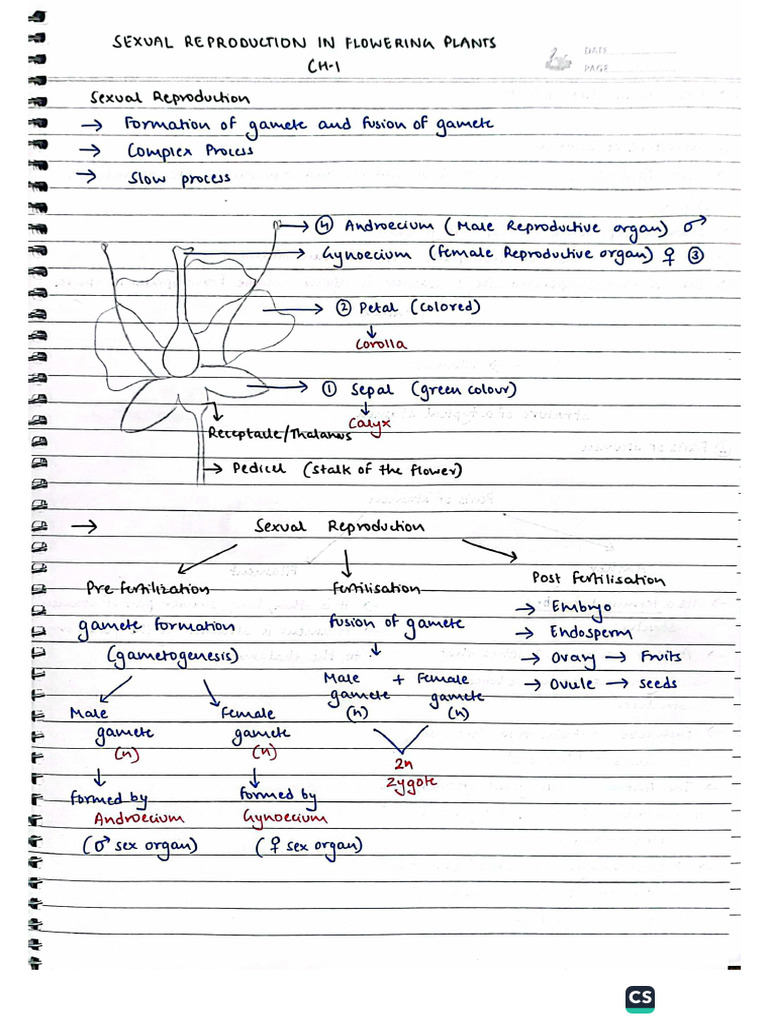 SEXUAL REPRODUCTION IN FLOWERING PLANTS
CH-1
DATE
PAGE
Sexual Reproduction
→ Formation of gamete and fusion of gamete
→ Complex Process
→ Slow process
→ ④ Androecium (Male Reproductive organ) ♂
→ Gynoecium (female Reproductive organ) ♀ ③
→ ② Petal (colored)
↓
Corolla
→ ① Sepal (green colour)
↓
Calyx
Receptacle/Thalamus
→ Pedicel (stalk of the flower)
→ Sexual Reproduction
Pre fertilization Fertilisation Post Fertilisation
gamete formation fusion of gamete → Embryo
(gametogenesis) ↓ → Endosperm
→ Ovary → Fruits
Male + Female → Ovule → seeds
gamete gamete
(n) (n)
Male Female
gamete gamete
(n) (n)
2n
zygote
↓ ↓
formed by formed by
Androecium Gynoecium
(♂ sex organ) (♀ sex organ)
CS